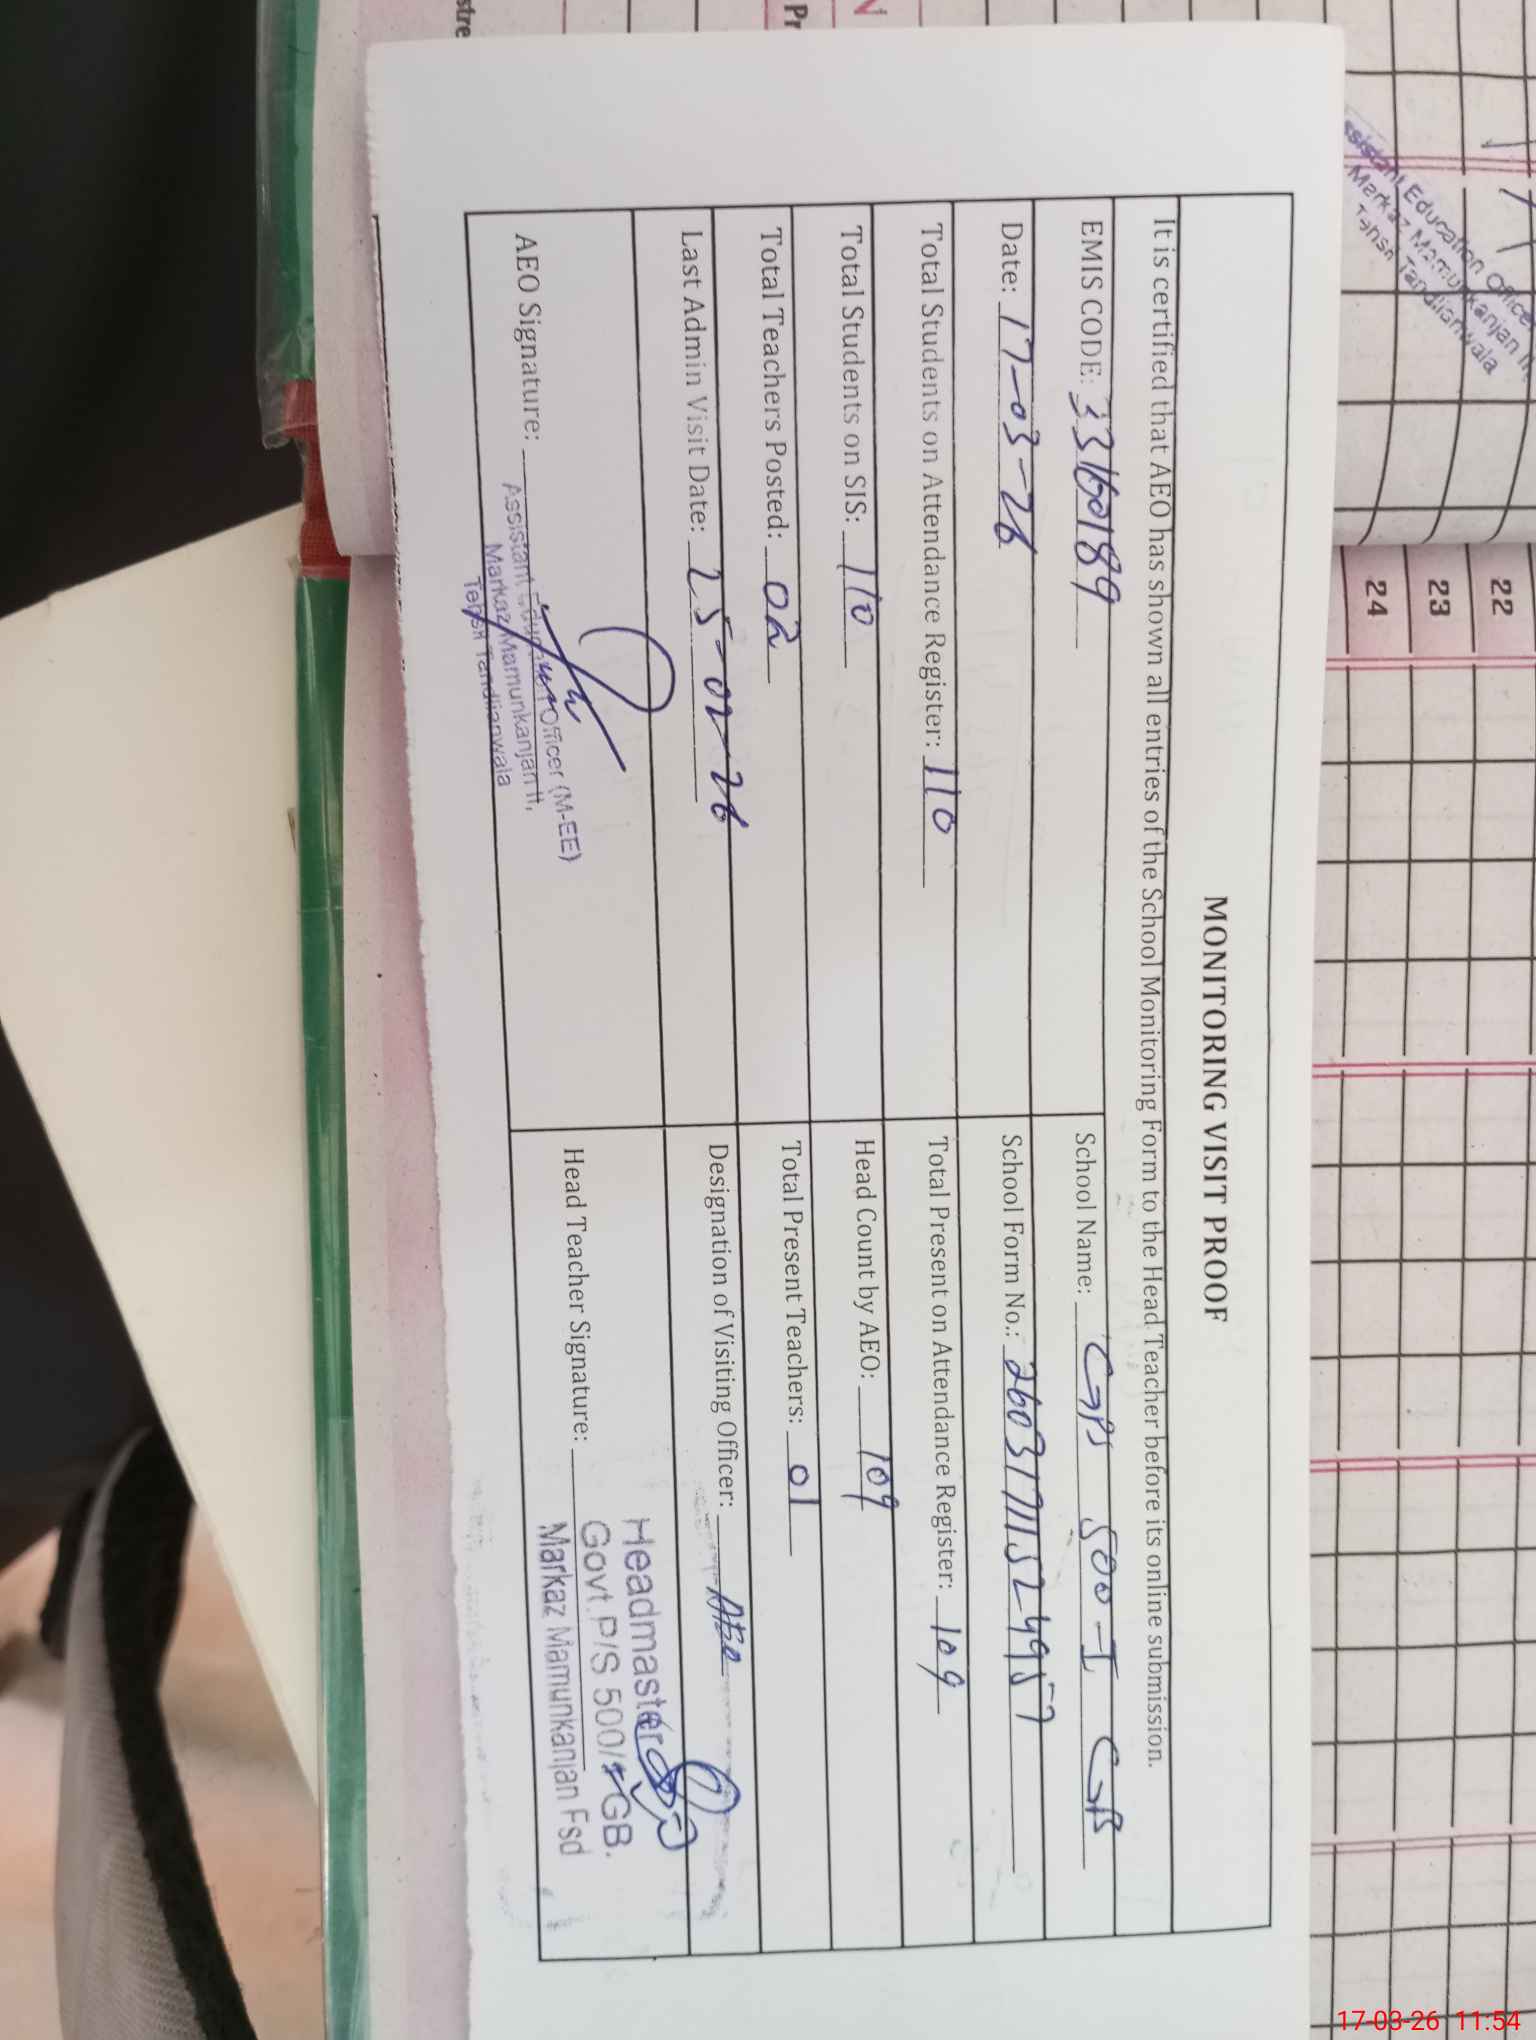 MONITORING VISIT PROOF
It is certified that AEO has shown all entries of the School Monitoring Form to the Head Teacher before its online submission.
EMIS CODE: 33160189
School Name: GPS 500-I GB
Date: 17-03-26
School Form No.: 260317111524957
Total Students on Attendance Register: 110
Total Present on Attendance Register: 109
Total Students on SIS: 110
Head Count by AEO: 109
Total Teachers Posted: 02
Total Present Teachers: 01
Last Admin Visit Date: 25-02-26
Designation of Visiting Officer: AEO
AEO Signature:
Assistant Education Officer (M-EE)
Markaz Mamunkanjan II,
Tehsil Tandlianwala
Head Teacher Signature:
Headmaster
Govt.P/S 500/ GB.
Markaz Mamunkanjan Fsd
Assistant Education Officer
Markaz Mamunkanjan
Tehsil Tandlianwala
22
23
24
Pr
stre
17-03-26 11:54